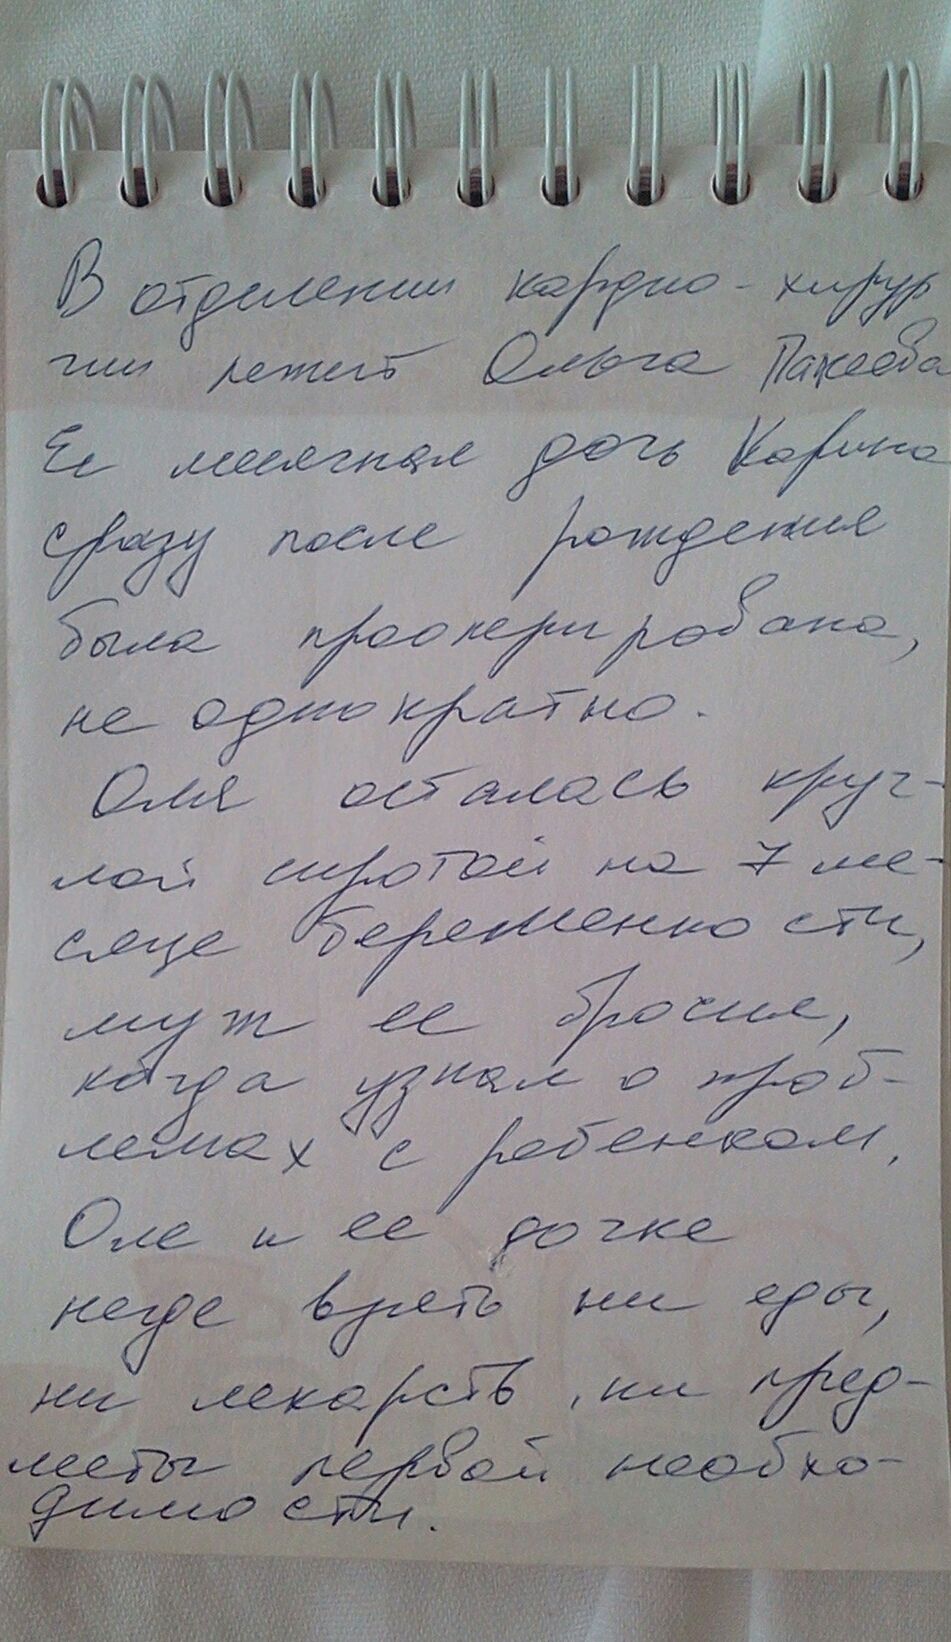 В отделении кардио-хирур
гии лежит Ольга
Ее месячная дочь Карина
сразу после рождения
была прооперирована,
не однократно.
Оля осталась круг-
лой сиротой на 7 ме-
сяце беременности,
муж ее бросил,
когда узнал о проб-
лемах с ребенком.
Оле и ее дочке
негде взять ни еды,
ни лекарств, ни пред-
меты первой необхо-
димости.